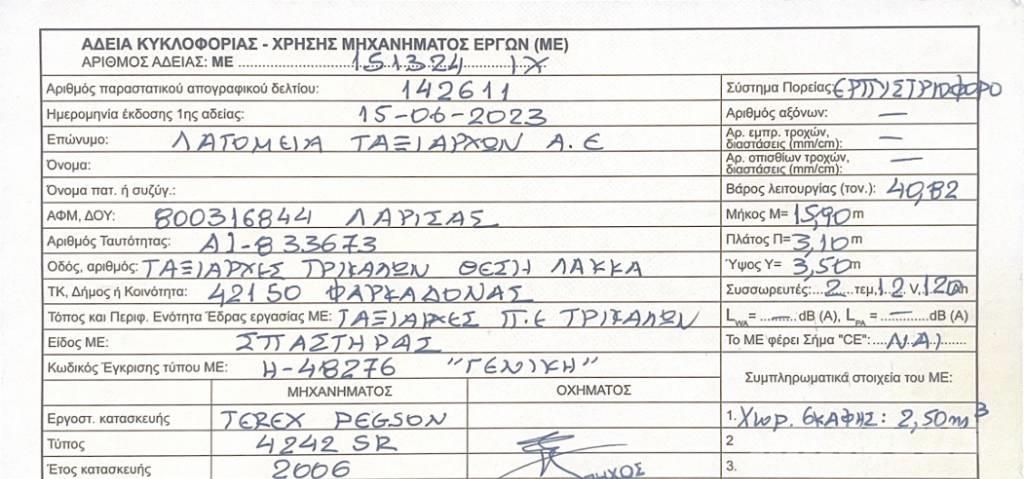 ΑΔΕΙΑ ΚΥΚΛΟΦΟΡΙΑΣ - ΧΡΗΣΗΣ ΜΗΧΑΝΗΜΑΤΟΣ ΕΡΓΩΝ (ΜΕ)
ΑΡΙΘΜΟΣ ΑΔΕΙΑΣ: ΜΕ 151324 ΙΧ
Αριθμός παραστατικού απογραφικού δελτίου: 142611
Σύστημα Πορείας: ΕΡΠΥΣΤΡΙΟΦΟΡΟ
Ημερομηνία έκδοσης 1ης αδείας: 15-06-2023
Αριθμός αξόνων: —
Επώνυμο: ΛΑΤΟΜΕΙΑ ΤΑΞΙΑΡΧΩΝ Α.Ε
Αρ. εμπρ. τροχών, διαστάσεις (mm/cm): —
Όνομα:
Αρ. οπισθίων τροχών, διαστάσεις (mm/cm): —
Όνομα πατ. ή συζύγ.:
Βάρος λειτουργίας (τον.): 40,82
ΑΦΜ, ΔΟΥ: 800316844 ΛΑΡΙΣΑΣ
Μήκος Μ= 15,90 m
Αριθμός Ταυτότητας: ΑΙ-833673
Πλάτος Π= 3,10 m
Οδός, αριθμός: ΤΑΞΙΑΡΧΕΣ ΤΡΙΚΑΛΩΝ ΘΕΣΗ ΛΑΚΚΑ
Ύψος Υ= 3,50 m
ΤΚ, Δήμος ή Κοινότητα: 42150 ΦΑΡΚΑΔΟΝΑΣ
Συσσωρευτές: 2 τεμ, 12 V, 120 Ah
Τόπος και Περιφ. Ενότητα Έδρας εργασίας ΜΕ: ΤΑΞΙΑΡΧΕΣ Π.Ε ΤΡΙΚΑΛΩΝ
LWA = — dB (A), LPA = — dB (A)
Είδος ΜΕ: ΣΠΑΣΤΗΡΑΣ
Το ΜΕ φέρει Σήμα "CE": ΝΑΙ
Κωδικός Έγκρισης τύπου ΜΕ: Η-48276 "ΓΕΝΙΚΗ"
ΜΗΧΑΝΗΜΑΤΟΣ
ΟΧΗΜΑΤΟΣ
Συμπληρωματικά στοιχεία του ΜΕ:
Εργοστ. κατασκευής TEREX PEGSON
1. Χωρ. ΣΚΑΦΗΣ: 2,50m3
Τύπος 4242 SR
2
Έτος κατασκευής 2006
3.